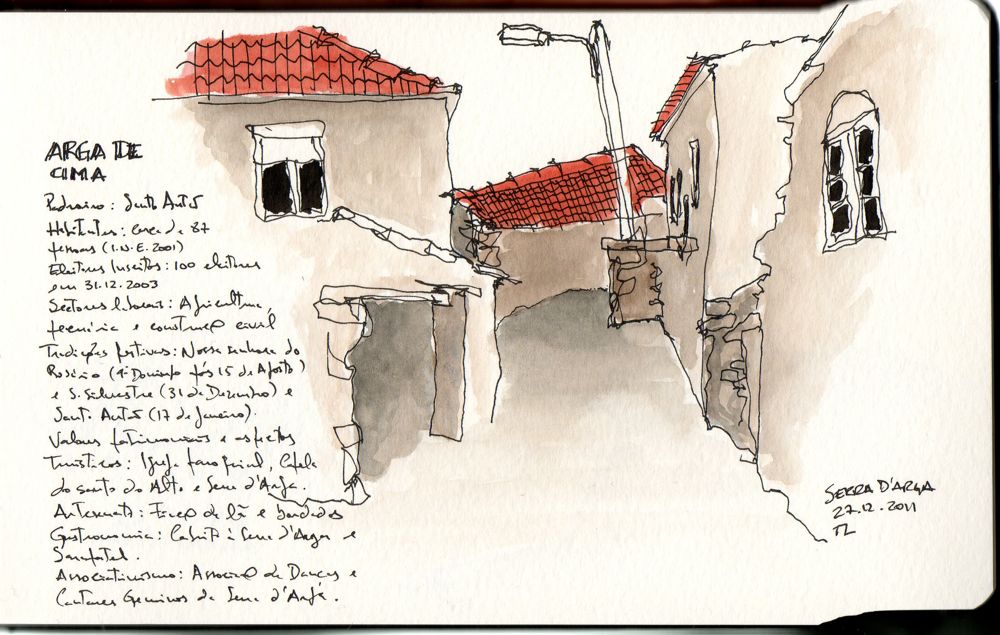 ARGA DE
CIMA
Padroeiro: Santo Antão
Habitantes: cerca de 87
pessoas (I.N.E. 2001)
Eleitores Inscritos: 100 eleitores
em 31.12.2003
Sectores laborais: Agricultura,
pecuária e construção civil
Tradições festivas: Nossa senhora do
Rosário (1º Domingo após 15 de Agosto)
e S. Silvestre (31 de Dezembro) e
Santo Antão (17 de Janeiro).
Valores patrimoniais e aspectos
Turísticos: Igreja paroquial, Capela
do santo do Alto e Serra d'Arga.
Artesanato: Fiação de lã e bordados
Gastronomia: Cabrito à Serra d'Arga e
Sarapatel.
Associativismo: Associação de Danças e
Cantares Genuínos da Serra d'Arga.
SERRA D'ARGA
27.12.2011